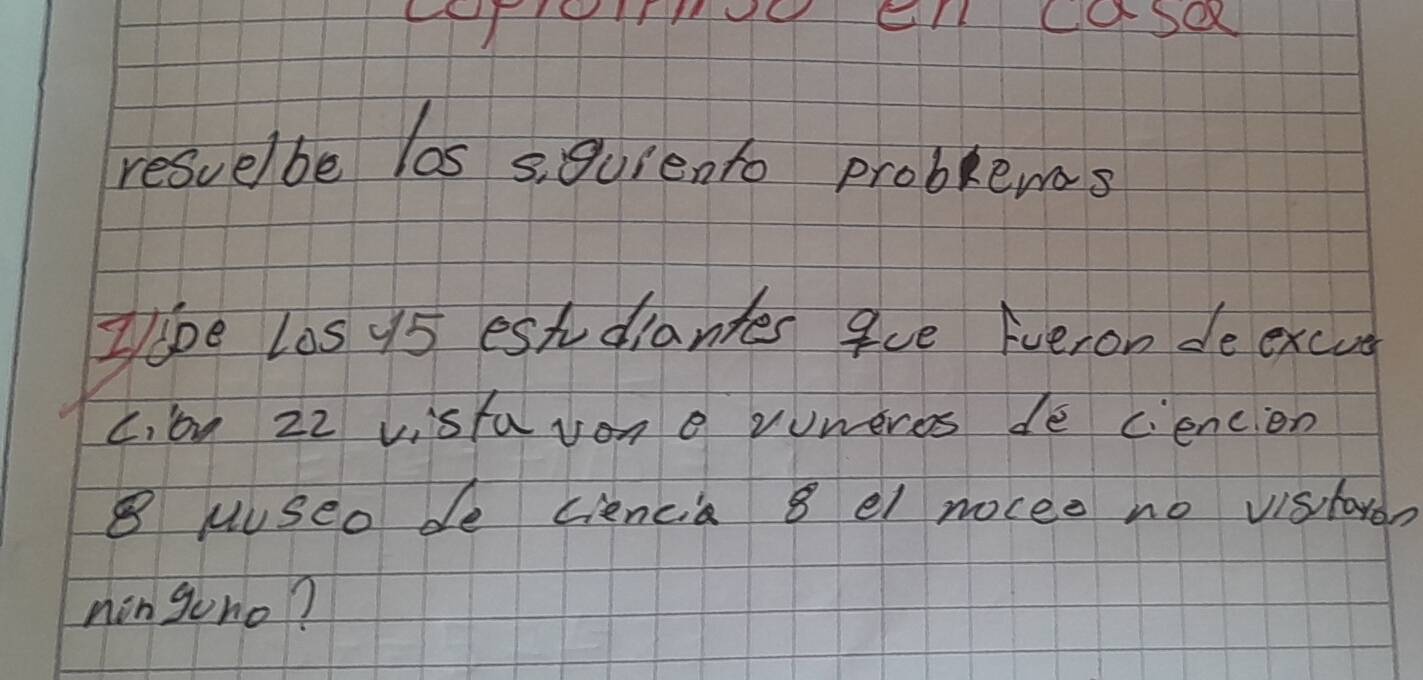 en casa
resuelbe los siguiento problemas
1) De Los 45 estudiantes que Fueron de excur
ción 22 vistavon e vumeros de ciencion
8 Museo de ciencia 8 el noceo no visitaron
ninguno?